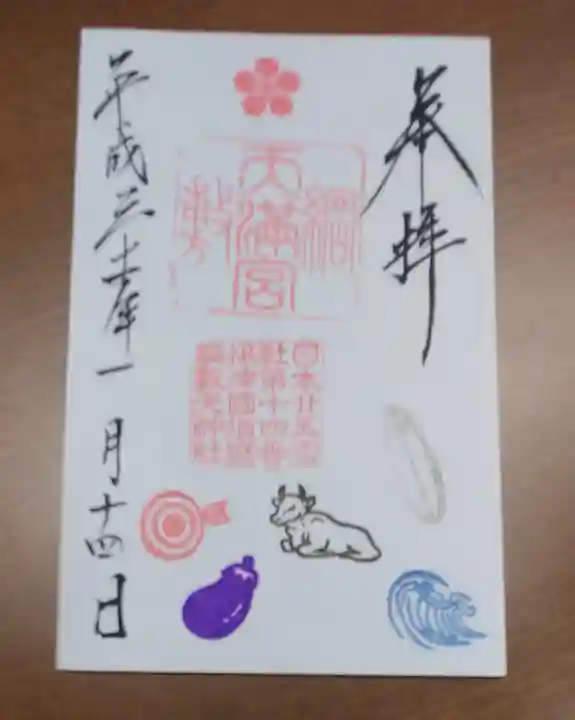 奉拝
綱敷
天満宮
日本廿五霊
社第十四番
津國須磨
綱敷天神社
平成三十一年一月十四日